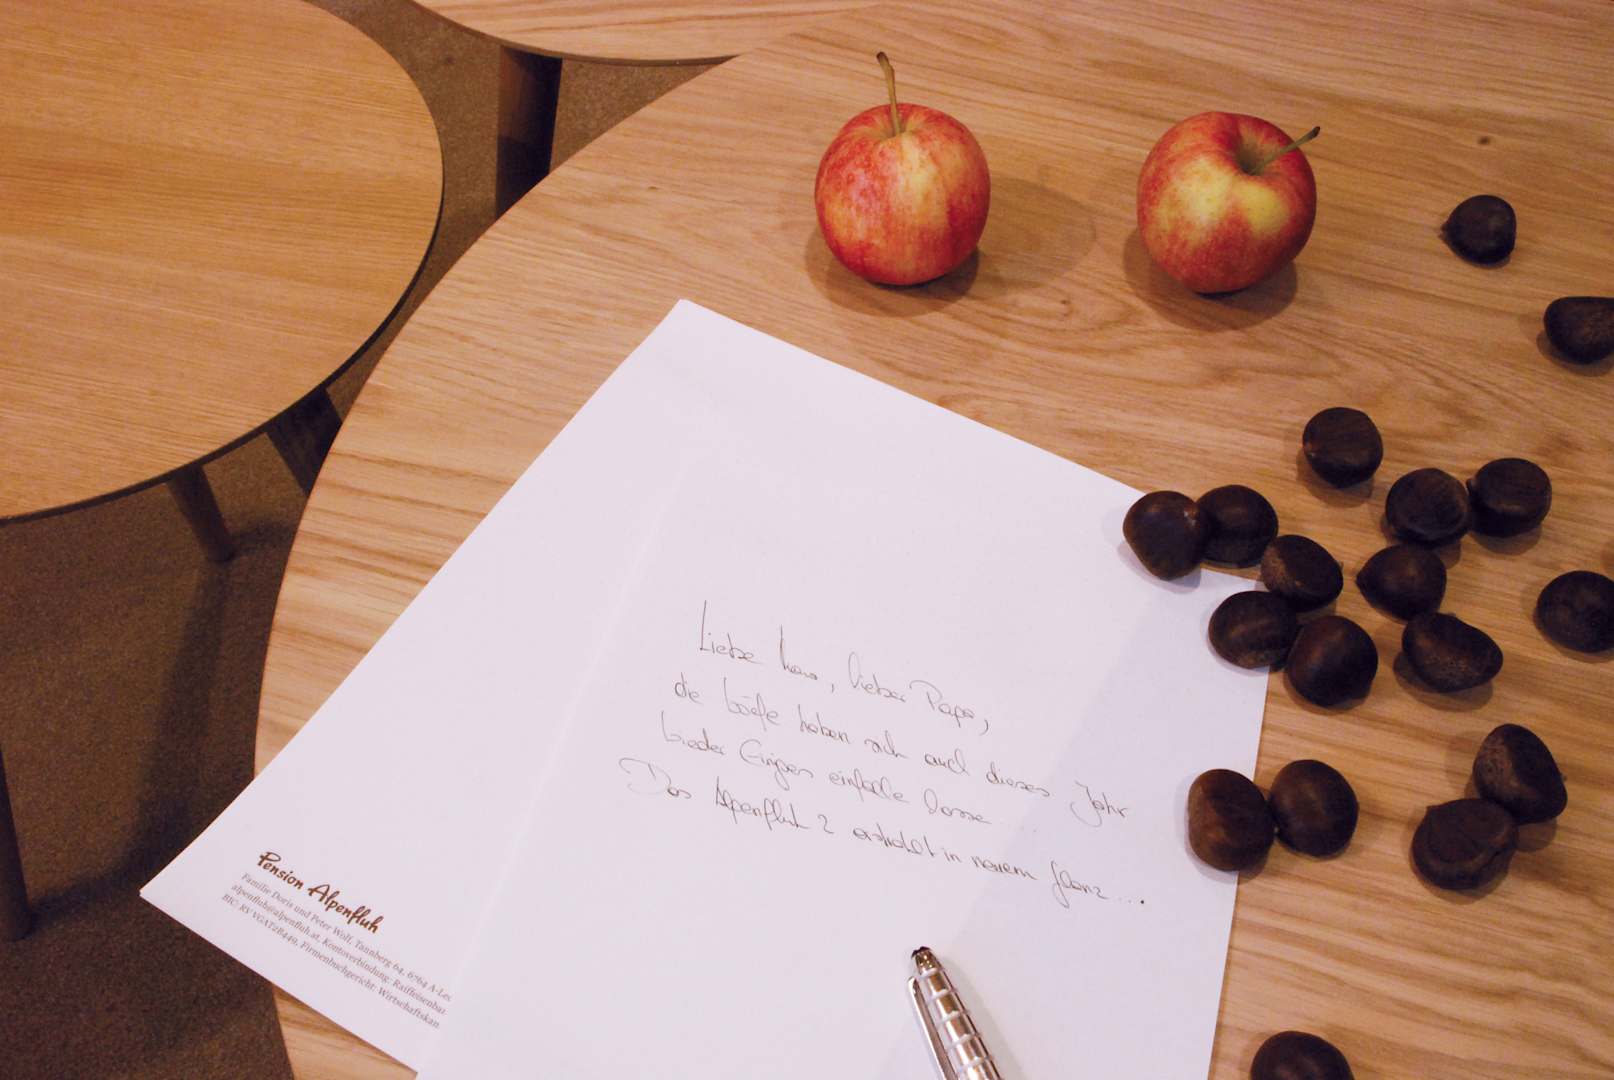 Liebe Mama, lieber Papa,
die haben sich auch dieses Jahr
wieder Einiges einfalle lasse ...
Das Alpenfluh 2 erstrahlt in neuem Glanz ...
Pension Alpenfluh
Familie Doris und Peter Wolf, Tannberg 64, 6764 A-Lec
alpenfluh@alpenfluh.at, Kontoverbindung: Raiffeisenban
BIC: RVVGAT2B449, Firmenbuchgericht: Wirtschaftskam